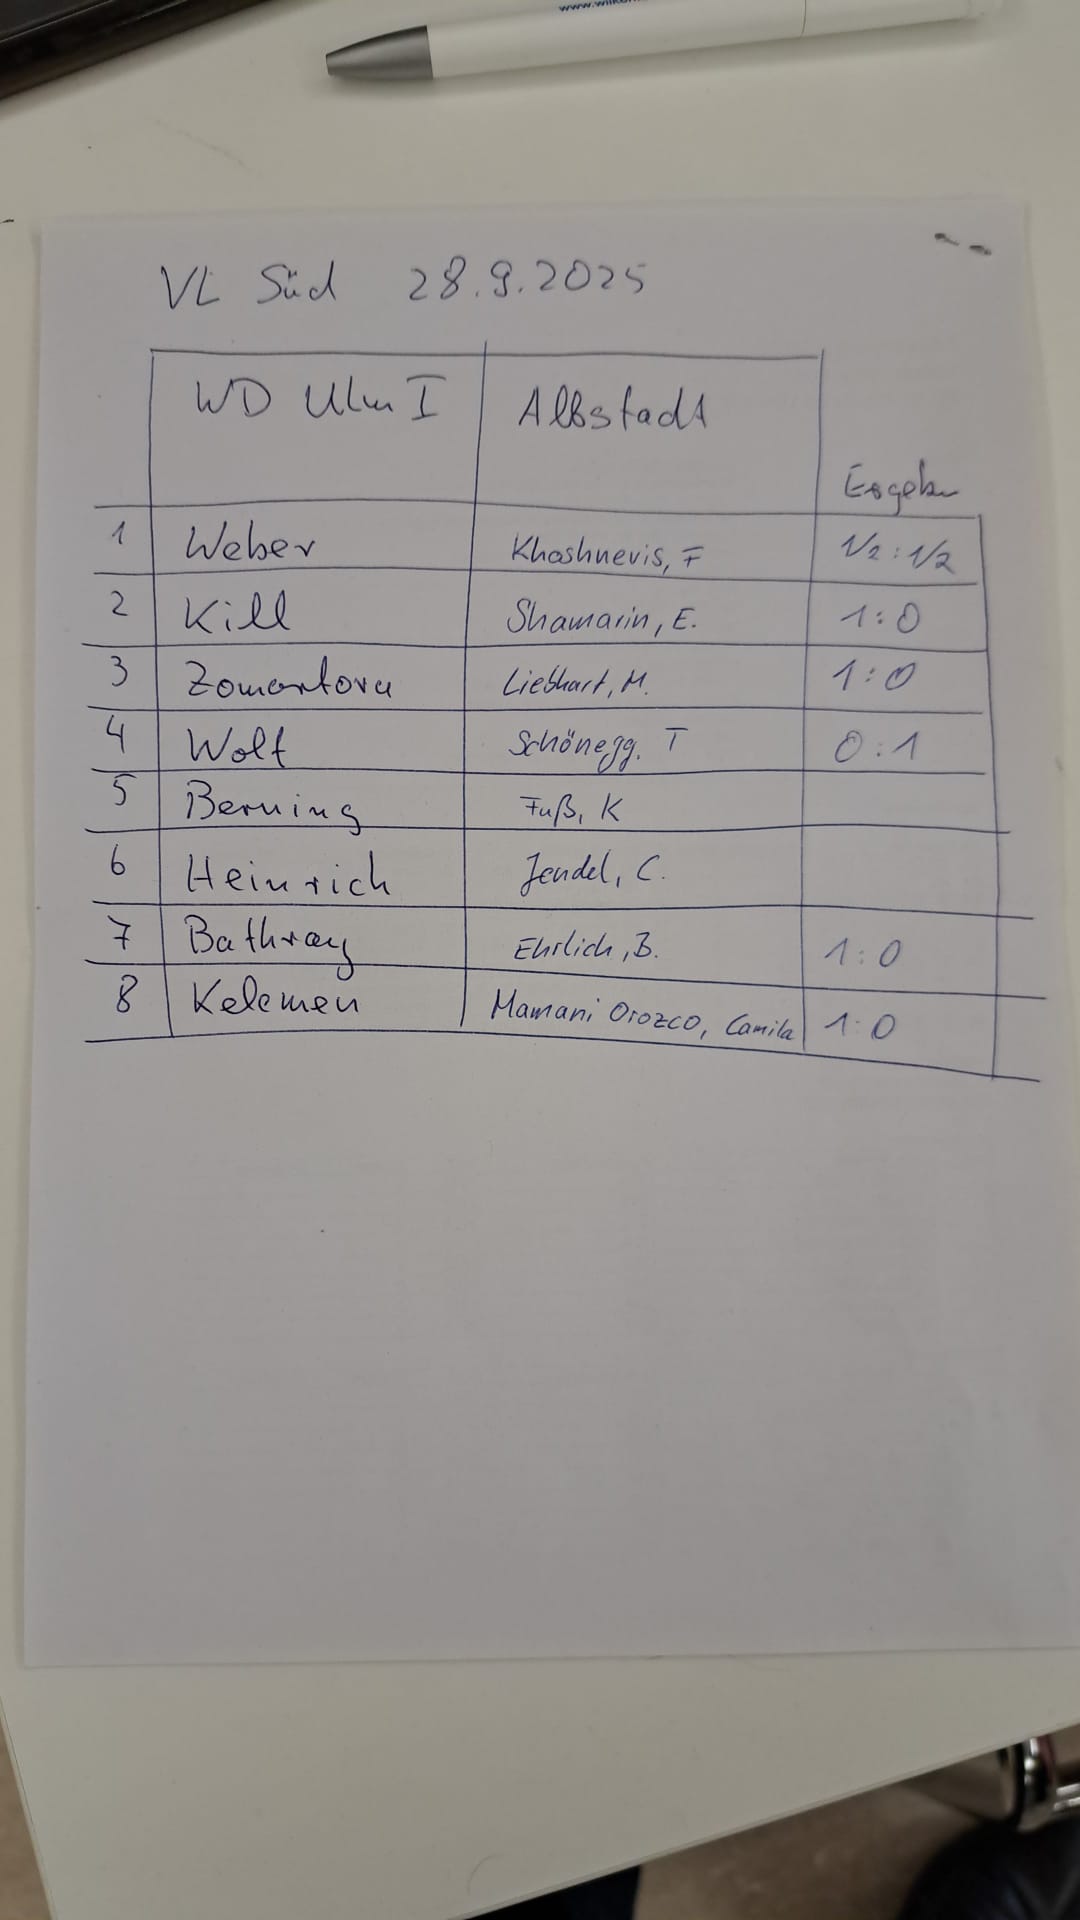 VL Süd 28.9.2025
WD Ulm I Albstadt
Ergebn
1 Weber Khoshnevis, F 1/2 : 1/2
2 Kill Shamarin, E. 1:0
3 Zomontova Liebhart, M. 1:0
4 Wolf Schönegg, T 0:1
5 Berning Fuß, K
6 Heinrich Jendel, C.
7 Bathray Ehrlich, B. 1:0
8 Kelemen Mamani Orozco, Camila 1:0